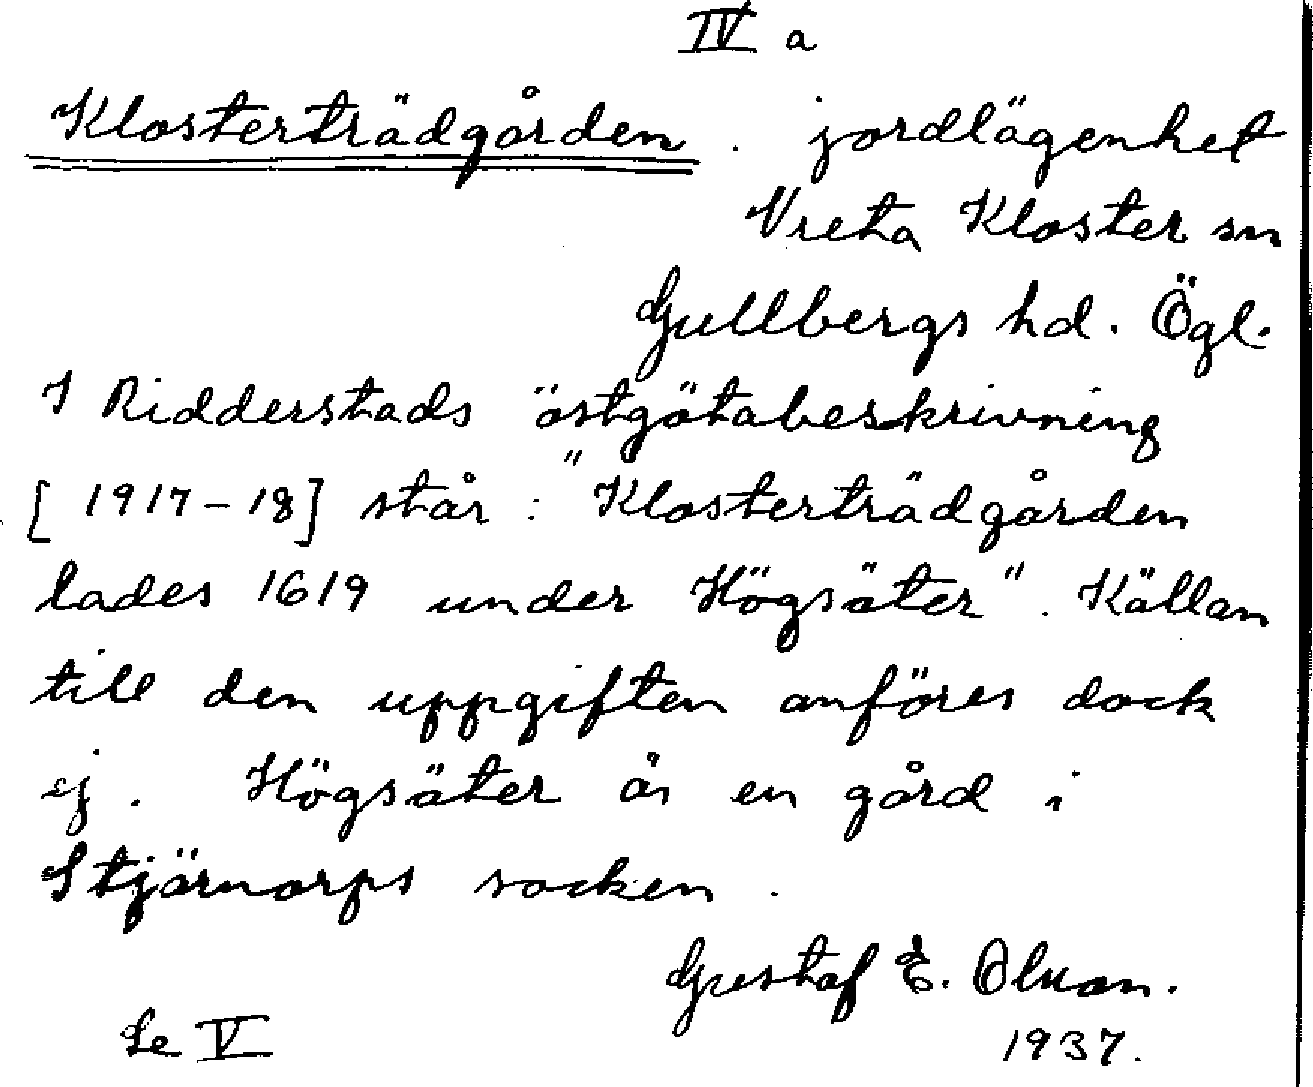 IV a
Klosterträdgården . jordlägenhet
Vreta Kloster sn
Gullbergs hd. Ögl.
I Ridderstads östgötabeskrivning
[1917-18] står : "Klosterträdgården
lades 1619 under Högsäter". Källan
till den uppgiften anföres dock
ej. Högsäter är en gård i
Stjärnorps socken .
Gustaf E. Olson.
Se V
1937.